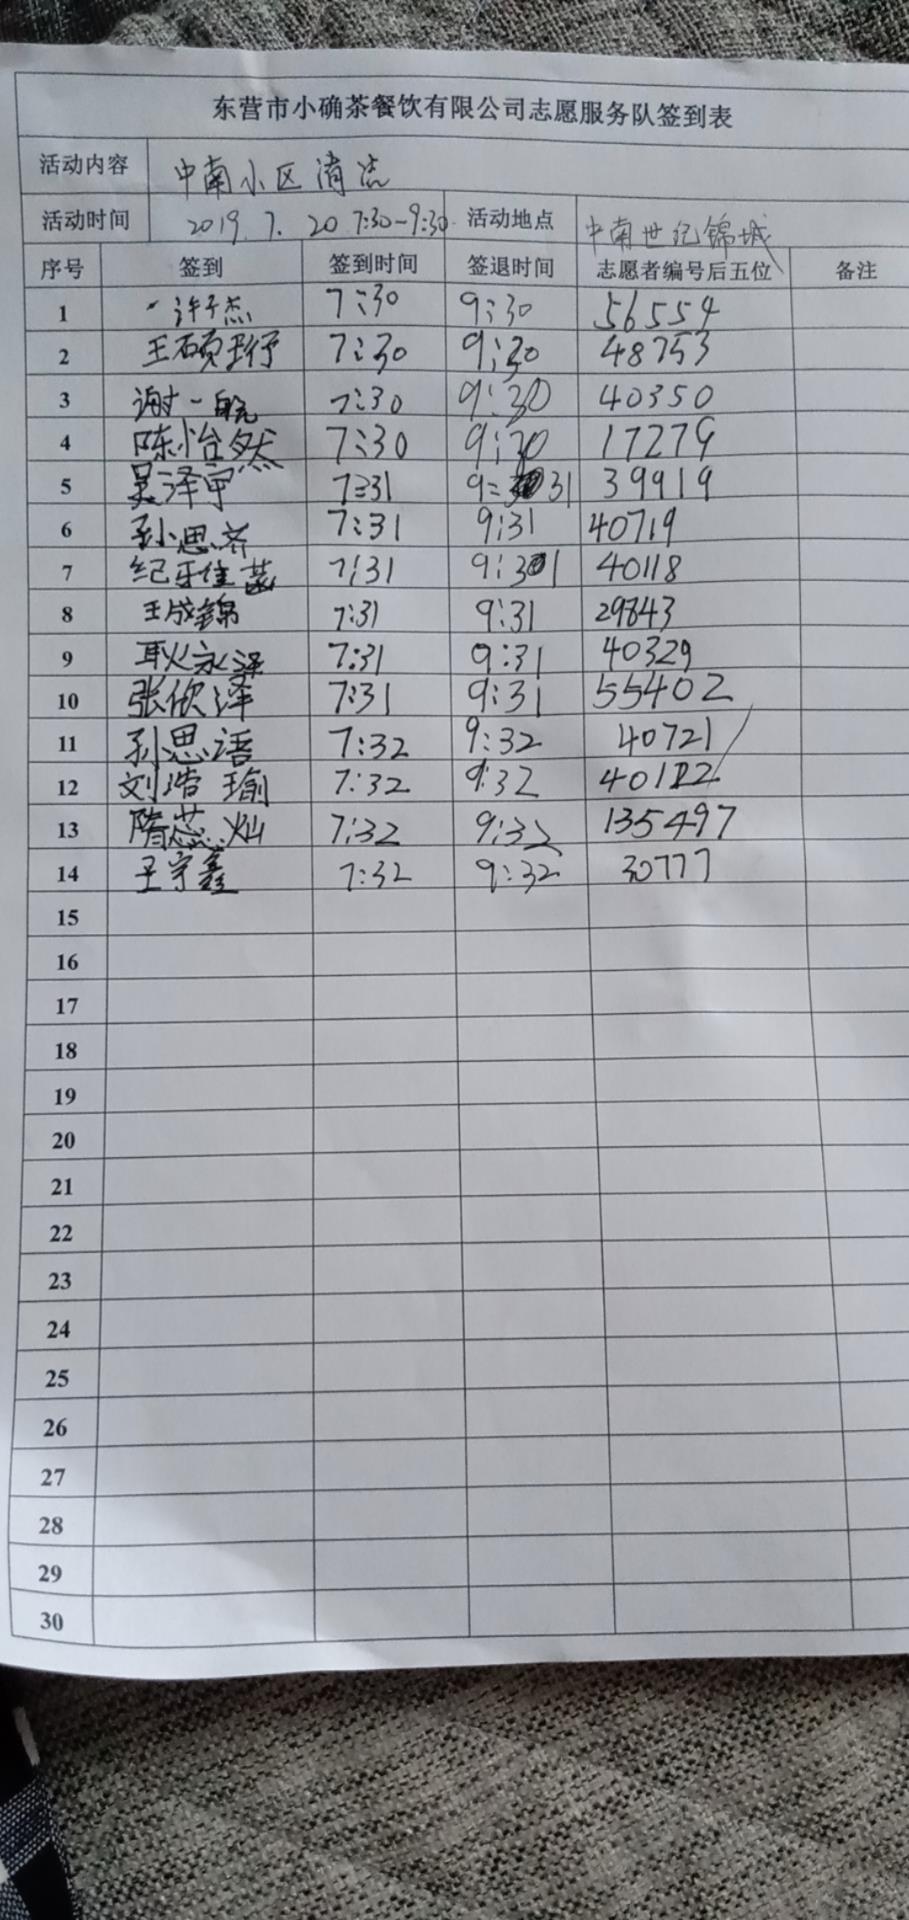 东营市小确茶餐饮有限公司志愿服务队签到表
活动内容 中南小区清洁
活动时间 2019.7.20 7:30-9:30 活动地点 中南世纪锦城
序号 签到 签到时间 签退时间 志愿者编号后五位 备注
1 许子杰 7:30 9:30 56554
2 王硕 7:30 9:30 48753
3 谢一皖 7:30 9:30 40350
4 陈怡然 7:30 9:30 17279
5 吴泽宇 7:31 9:31 39919
6 孙思齐 7:31 9:31 40719
7 纪 佳 7:31 9:31 40118
8 王成锦 7:31 9:31 29843
9 耿永泽 7:31 9:31 40329
10 张欣泽 7:31 9:31 55402
11 孙思语 7:32 9:32 40721
12 刘浩瑜 7:32 9:32 40122
13 隋蕊灿 7:32 9:32 135497
14 王宇鑫 7:32 9:32 30777
15
16
17
18
19
20
21
22
23
24
25
26
27
28
29
30